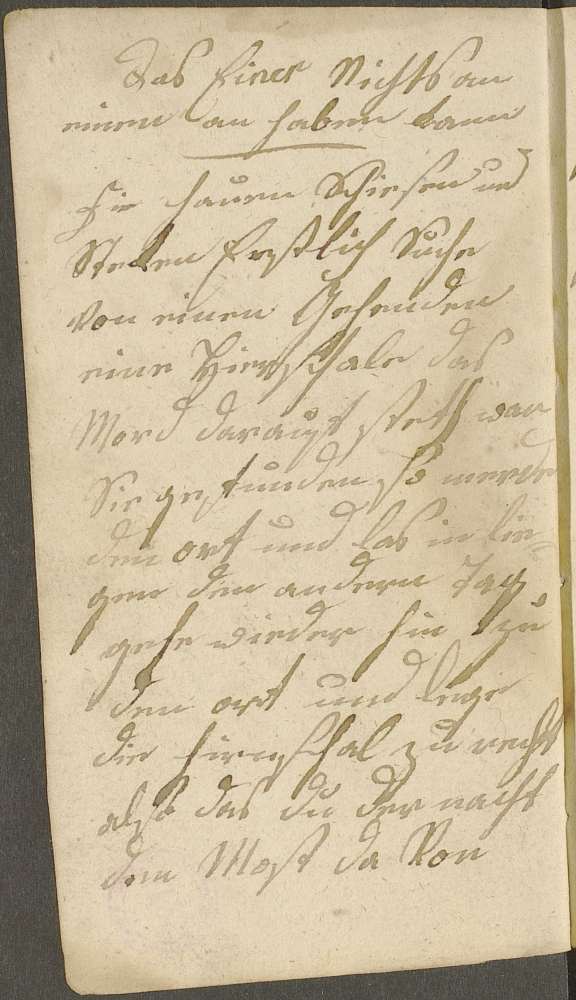 Das Einer Nichts an
einen an haben kann
sie hauen Schiesen und
Stechen Erstlich Suche
Von einen Gehenden
eine Hirnschale das
Mord darauf steht wan
Sie gefunden so merck
den ort und las in lie-
gen den andern Tag
gehe wieder hin zu
den ort und lege
die Hirnschal zu recht
also das du der nacht
den Most da Von